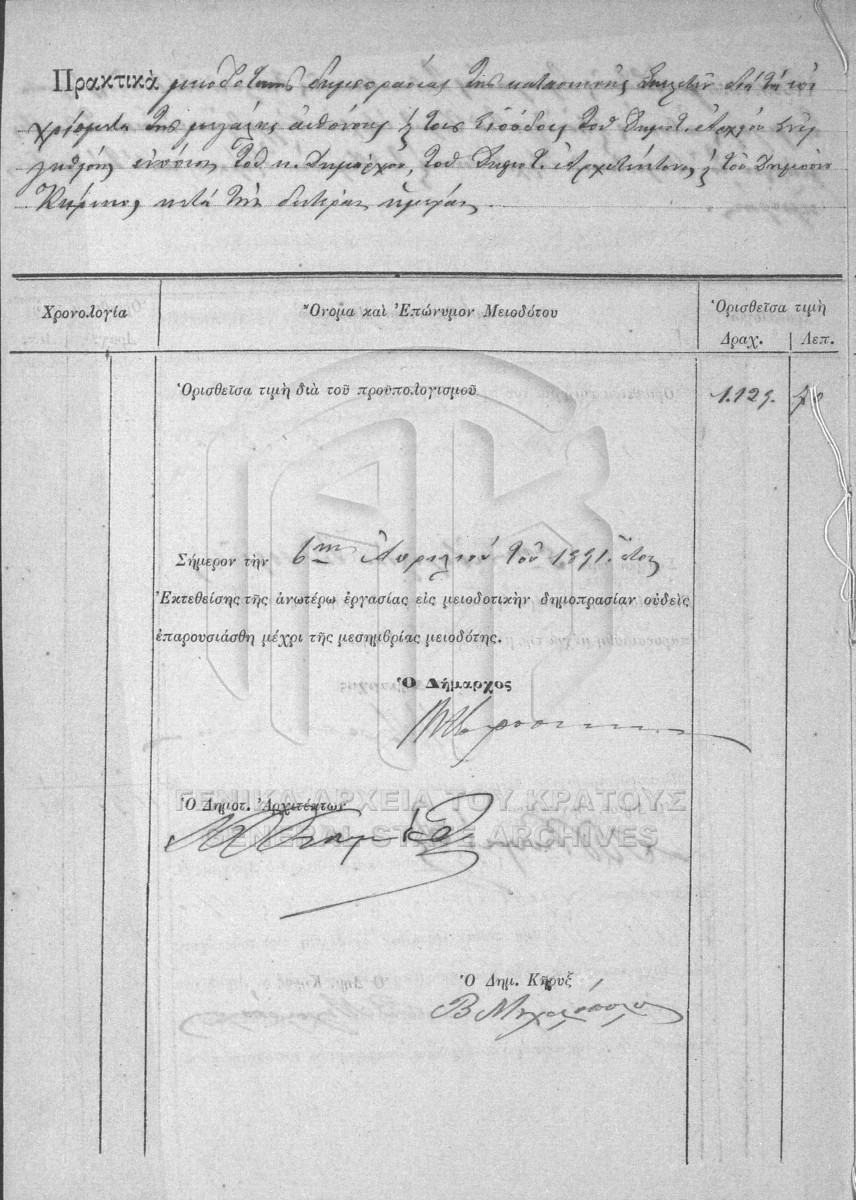 Πρακτικὰ μειοδοτικῆς δημοπρασίας τῆς κατασκευῆς διὰ τὰ ἐπι
χρίσματα τῆς μεγάλης αἰθούσης καὶ τῆς εἰσόδου τοῦ Δημοτ.
ἐνώπιον τοῦ κ. Δημάρχου, τοῦ Δημοτ. Ἀρχιτέκτονος καὶ τοῦ Δημοσίου
Κήρυκος κατὰ τὴν δευτέραν ἡμέραν.
Χρονολογία
Ὄνομα καὶ Ἐπώνυμον Μειοδότου
Ὁρισθεῖσα τιμὴ
Δραχ. Λεπ.
Ὁρισθεῖσα τιμὴ διὰ τοῦ προϋπολογισμοῦ 1.129. 70
Σήμερον τὴν 6ην Ἀπριλίου τοῦ 1891 ἔτους
Ἐκτεθείσης τῆς ἀνωτέρω ἐργασίας εἰς μειοδοτικὴν δημοπρασίαν οὐδεὶς
ἐπαρουσιάσθη μέχρι τῆς μεσημβρίας μειοδότης.
Ὁ Δήμαρχος
Ὁ Δημοτ. Ἀρχιτέκτων
ΓΕΝΙΚΑ ΑΡΧΕΙΑ ΤΟΥ ΚΡΑΤΟΥΣ
GENERAL STATE ARCHIVES
Ὁ Δημ. Κῆρυξ